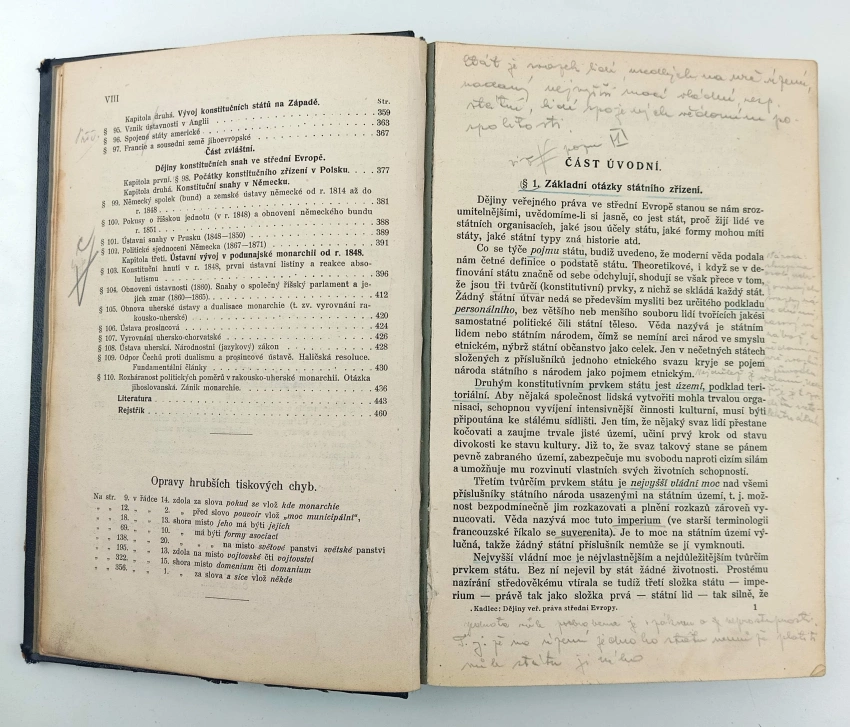 VIII
Str.
Kapitola druhá. Vývoj konstitučních států na Západě.
§ 95. Vznik ústavnosti v Anglii . . . 359
§ 96. Spojené státy americké . . . 363
§ 97. Francie a sousední země jihoevropské . . . 367
Část zvláštní.
Dějiny konstitučních snah ve střední Evropě.
Kapitola první. § 98. Počátky konstitučního zřízení v Polsku. . 377
Kapitola druhá. Konstituční snahy v Německu.
§ 99. Německý spolek (bund) a zemské ústavy německé od r. 1814 až do
r. 1848 . . . 381
§ 100. Pokusy o říšskou jednotu (v r. 1848) a obnovení německého bundu
r. 1851 . . . 388
§ 101. Ústavní snahy v Prusku (1848—1850) . . . 389
§ 102. Politické sjednocení Německa (1867—1871) . . . 391
Kapitola třetí. Ústavní vývoj v podunajské monarchii od r. 1848.
§ 103. Konstituční hnutí v r. 1848, první ústavní listiny a reakce abso-
lutismu . . . 396
§ 104. Obnovení ústavnosti (1860). Snahy o společný říšský parlament a je-
jich zmar (1860—1865). . . . 412
§ 105. Obnova uherské ústavy a dualisace monarchie (t. zv. vyrovnání ra-
kousko-uherské) . . . 420
§ 106. Ústava prosincová . . . 424
§ 107. Vyrovnání uhersko-chorvatské . . . 426
§ 108. Ústava uherská. Národnostní (jazykový) zákon . . . 428
§ 109. Odpor Čechů proti dualismu a prosincové ústavě. Haličská resoluce.
Fundamentální články . . . 430
§ 110. Rozháranost politických poměrů v rakousko-uherské monarchii. Otázka
jihoslovanská. Zánik monarchie. . . . 436
Literatura . . . 443
Rejstřík . . . 460
Opravy hrubších tiskových chyb.
Na str. 9. v řádce 14. zdola za slova pokud se vlož kde monarchie
„ „ 12. „ „ 2. „ před slovo pouvoir vlož „moc municipální“,
„ „ 18. „ „ 13. shora místo jeho má býti jejich
„ „ 69. „ „ 10. „ má býti formy asociaci
„ „ 138. „ „ 20. „ „ na místo světové panství světské panství
„ „ 195. „ „ 13. zdola na místo vojtovské čti vojtovského
„ „ 322. „ „ 15. shora místo domenium čti domanium
„ „ 356. „ „ 1. „ za slova a sice vlož někde
Stát je svazek lidí, usedlých na
nadaný nejvyšší mocí vládní, resp.
státní, lidí spojených vědomím po-
spolitosti.
VI
ČÁST ÚVODNÍ.
§ 1. Základní otázky státního zřízení.
Dějiny veřejného práva ve střední Evropě stanou se nám sroz-
umitelnějšími, uvědomíme-li si jasně, co jest stát, proč žijí lidé ve
státních organisacích, jaké jsou účely státu, jaké formy mohou míti
státy, jaké státní typy zná historie atd.
Co se týče pojmu státu, budiž uvedeno, že moderní věda podala
nám četné definice o podstatě státu. Theoretikové, i když se v de-
finování státu značně od sebe odchylují, shodují se však přece v tom,
že jsou tři tvůrčí (konstitutivní) prvky, z nichž se skládá každý stát.
Žádný státní útvar nedá se především mysliti bez určitého podkladu
personálního, bez většího neb menšího souboru lidí tvořících jakési
samostatné politické čili státní těleso. Věda nazývá je státním
lidem nebo státním národem, čímž se nemíní arci národ ve smyslu
etnickém, nýbrž státní občanstvo jako celek. Jen v nečetných státech
složených z příslušníků jednoho etnického svazu kryje se pojem
národa státního s národem jako pojmem etnickým.
Druhým konstitutivním prvkem státu jest území, podklad teri-
toriální. Aby nějaká společnost lidská vytvořiti mohla trvalou orga-
nisaci, schopnou vyvíjení intensivnější činnosti kulturní, musí býti
připoutána ke stálému sídlišti. Jen tím, že nějaký svaz lidí přestane
kočovati a zaujme trvale jisté území, učiní prvý krok od stavu
divokosti ke stavu kultury. Již to, že svaz takový stane se pánem
pevně zabraného území, zabezpečuje mu svobodu naproti cizím silám
a umožňuje mu rozvinutí vlastních svých životních schopností.
Třetím tvůrčím prvkem státu je nejvyšší vládní moc nad všemi
příslušníky státního národa usazenými na státním území, t. j. mož-
nost bezpodmínečně jim rozkazovati a plnění rozkazů zároveň vy-
nucovati. Věda nazývá moc tuto imperium (ve starší terminologii
francouzské říkalo se suverenita). Je to moc na státním území vý-
lučná, takže žádný státní příslušník nemůže se jí vymknouti.
Nejvyšší vládní moc je nejvlastnějším a nejdůležitějším tvůrčím
prvkem státu. Bez ní nejevil by stát žádné životnosti. Prostému
nazírání středověkému vtírala se tudíž třetí složka státu — impe-
rium — právě tak jako složka prvá — státní lid — tak silně, že
Kadlec: Dějiny veř. práva střední Evropy. 1